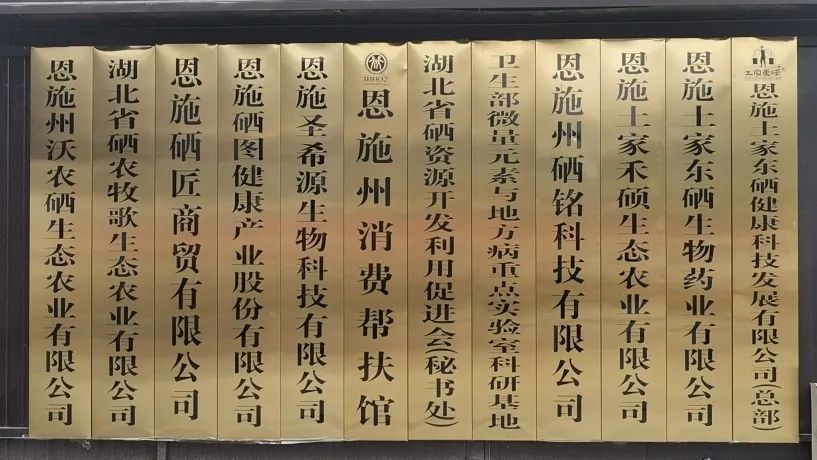 恩施州沃农硒生态农业有限公司
湖北省硒农牧歌生态农业有限公司
恩施硒匠商贸有限公司
恩施硒图健康产业股份有限公司
恩施圣希源生物科技有限公司
扶贫832
恩施州消费帮扶馆
湖北省硒资源开发利用促进会(秘书处)
卫生部微量元素与地方病重点实验室科研基地
恩施州硒铭科技有限公司
恩施土家禾硕生态农业有限公司
恩施土家东硒生物药业有限公司
恩施土家东硒健康科技发展有限公司(总部)